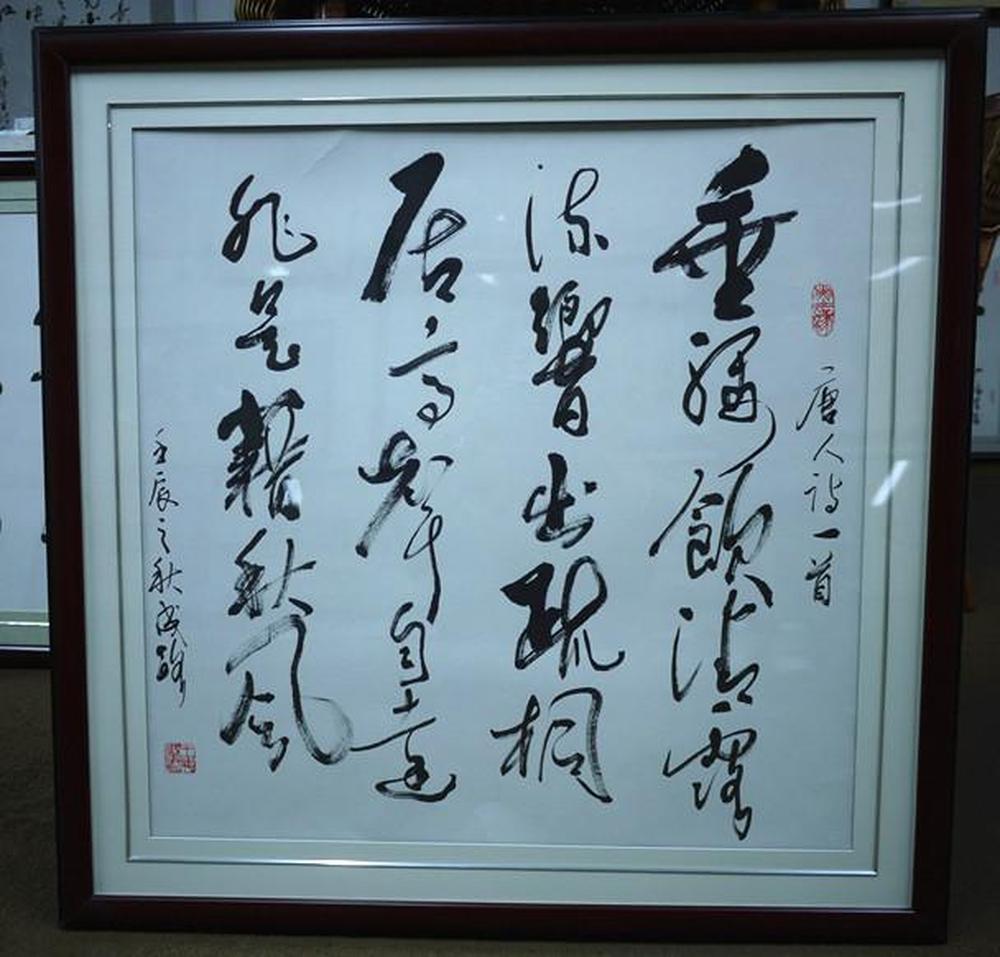 唐人詩一首
垂緌飲清露
流響出疏桐
居高聲自遠
非是藉秋風
壬辰之秋